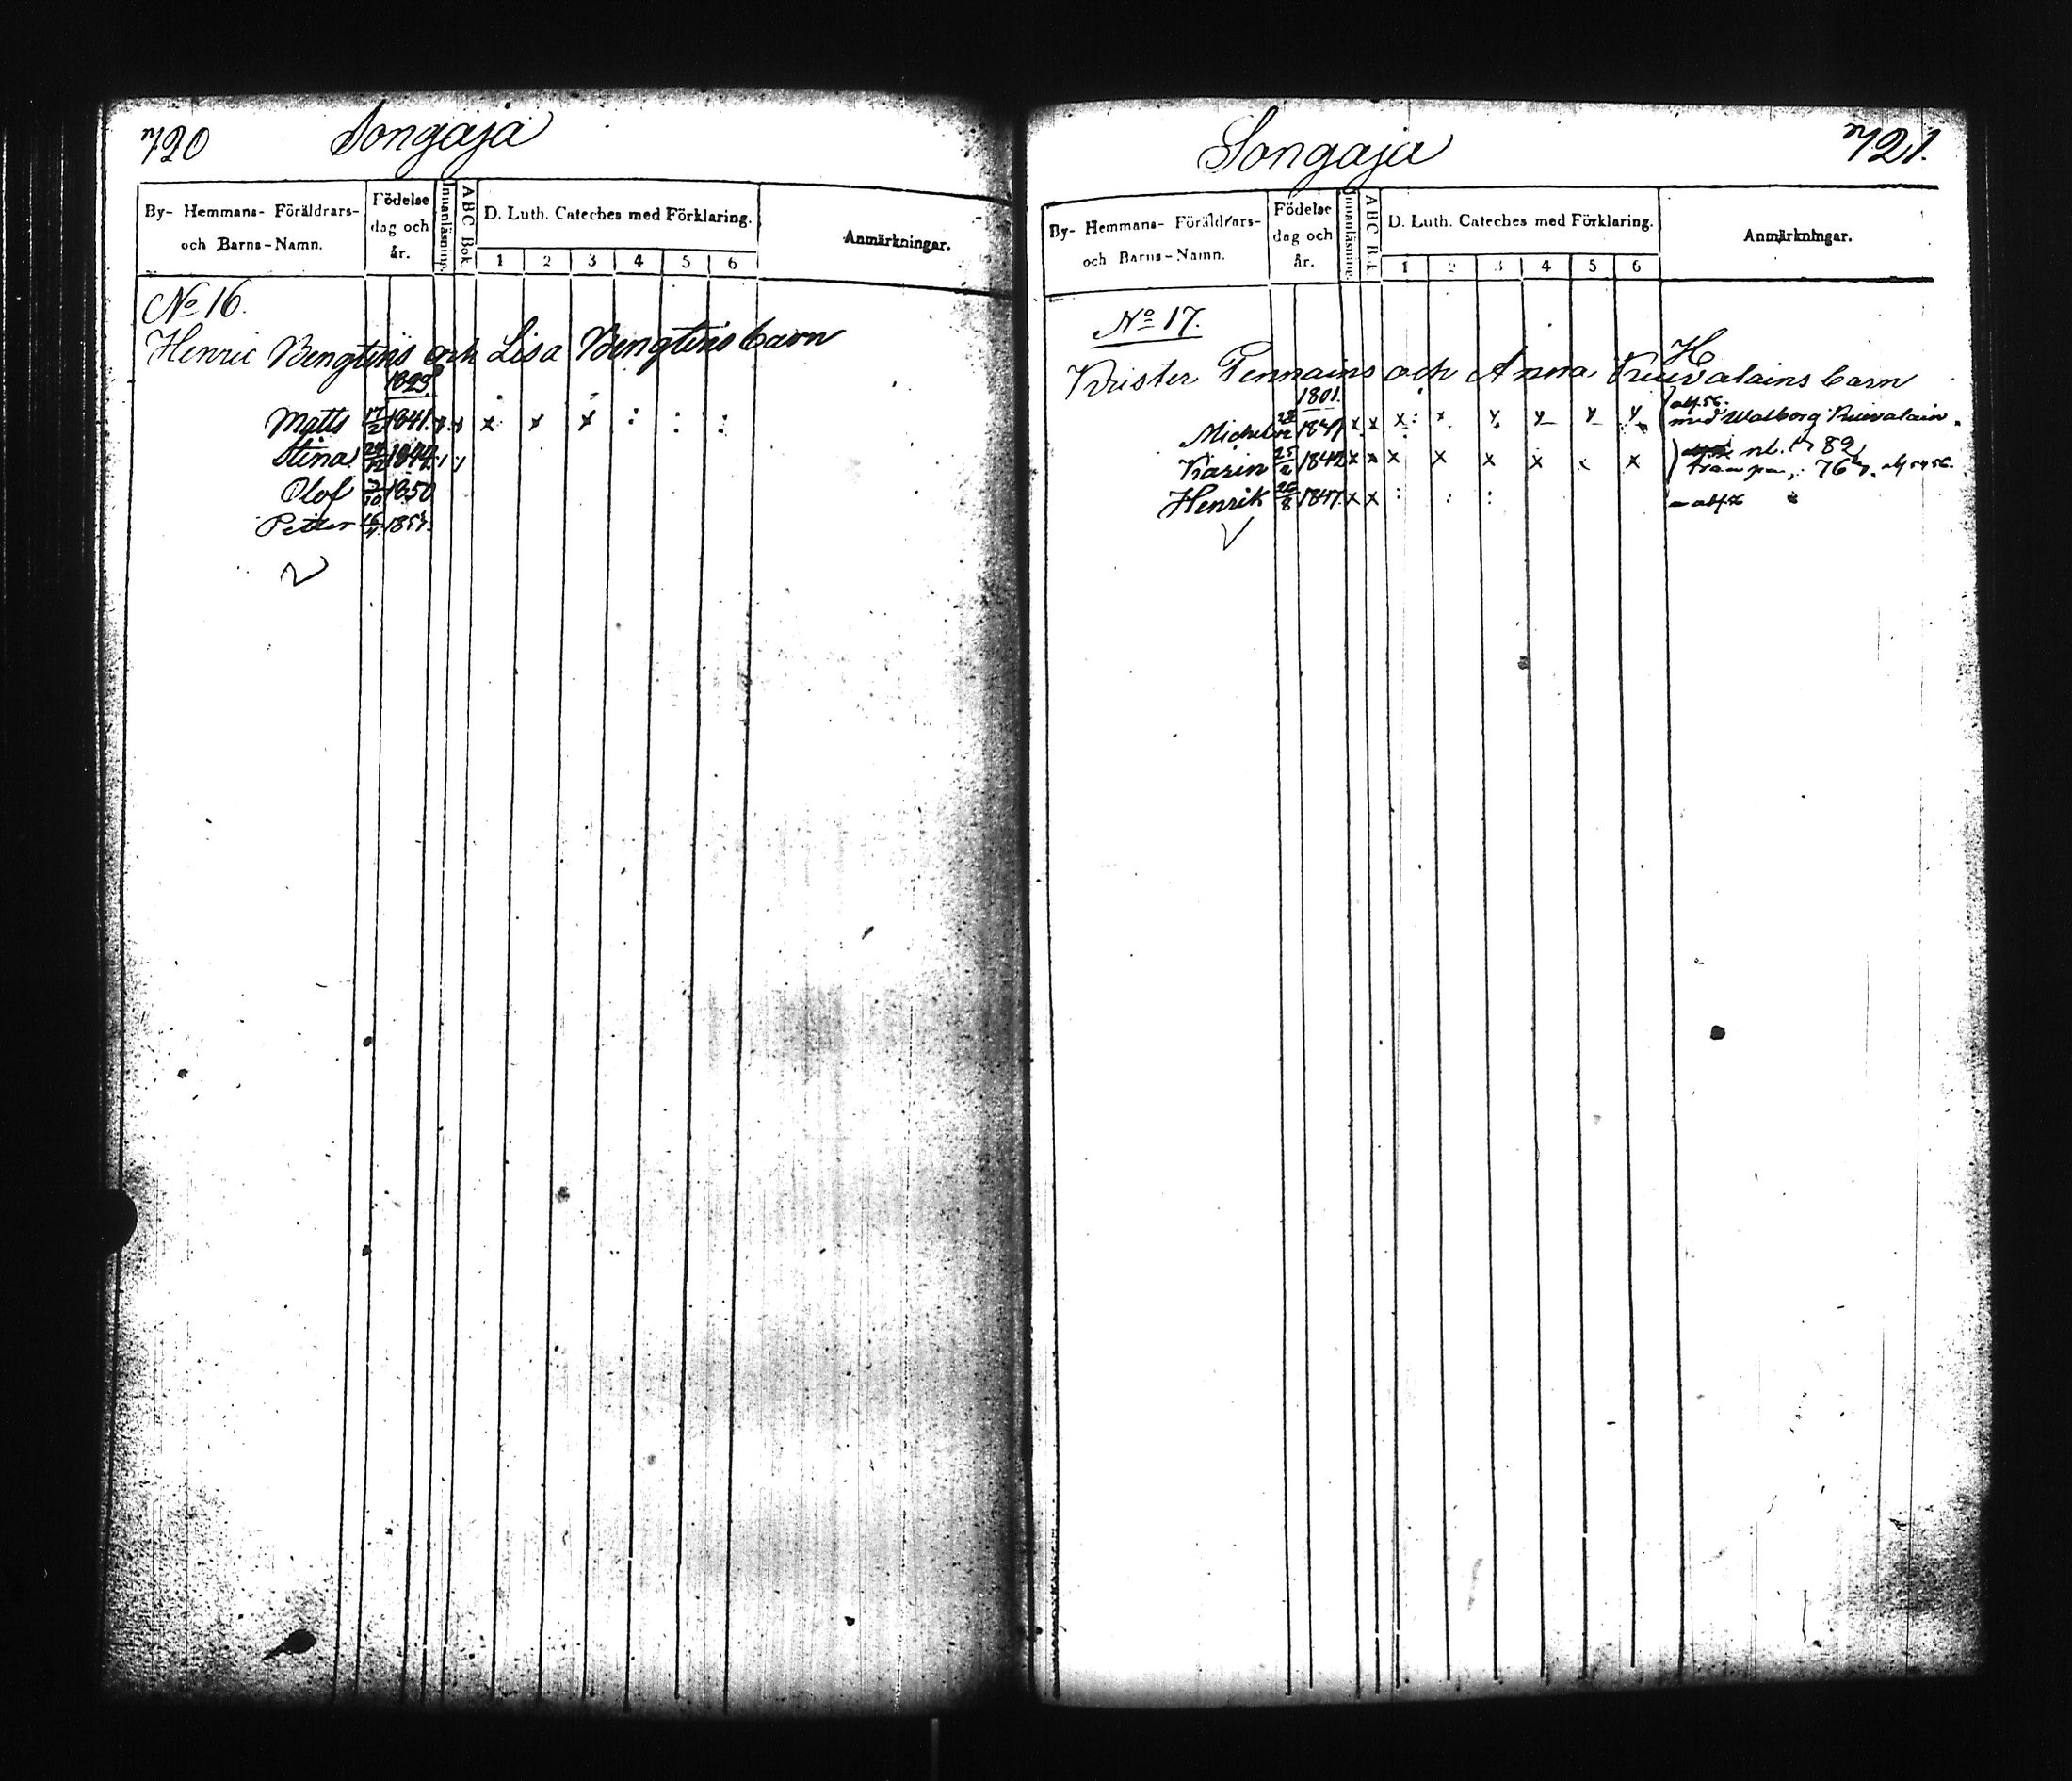 720 Songaja
By- Hemmans- Föräldrars- och Barns-Namn. Födelse dag och år. Innanläsning. ABC Bok. D. Luth. Cateches med Förklaring. 1 2 3 4 5 6 Anmärkningar.
No 16.
Henric Bengtins och Lisa Bengtins barn
Matts 17/2 1841. x x x x x : : :
Stina
Olof 1850
Petter
Songaja 721.
By- Hemmans- Föräldrars- och Barns-Namn. Födelse dag och år. Innanläsning. ABC Bok. D. Luth. Cateches med Förklaring. 1 2 3 4 5 6 Anmärkningar.
No 17.
H
Krister Pennains och Anna Kuuvalains barn
1801.
abf. 56.
Michel x x x x med Walborg Kuuvalain.
Karin 25/2 1842 x x x x x x x
Henrik 26/8 1847. x x : : :